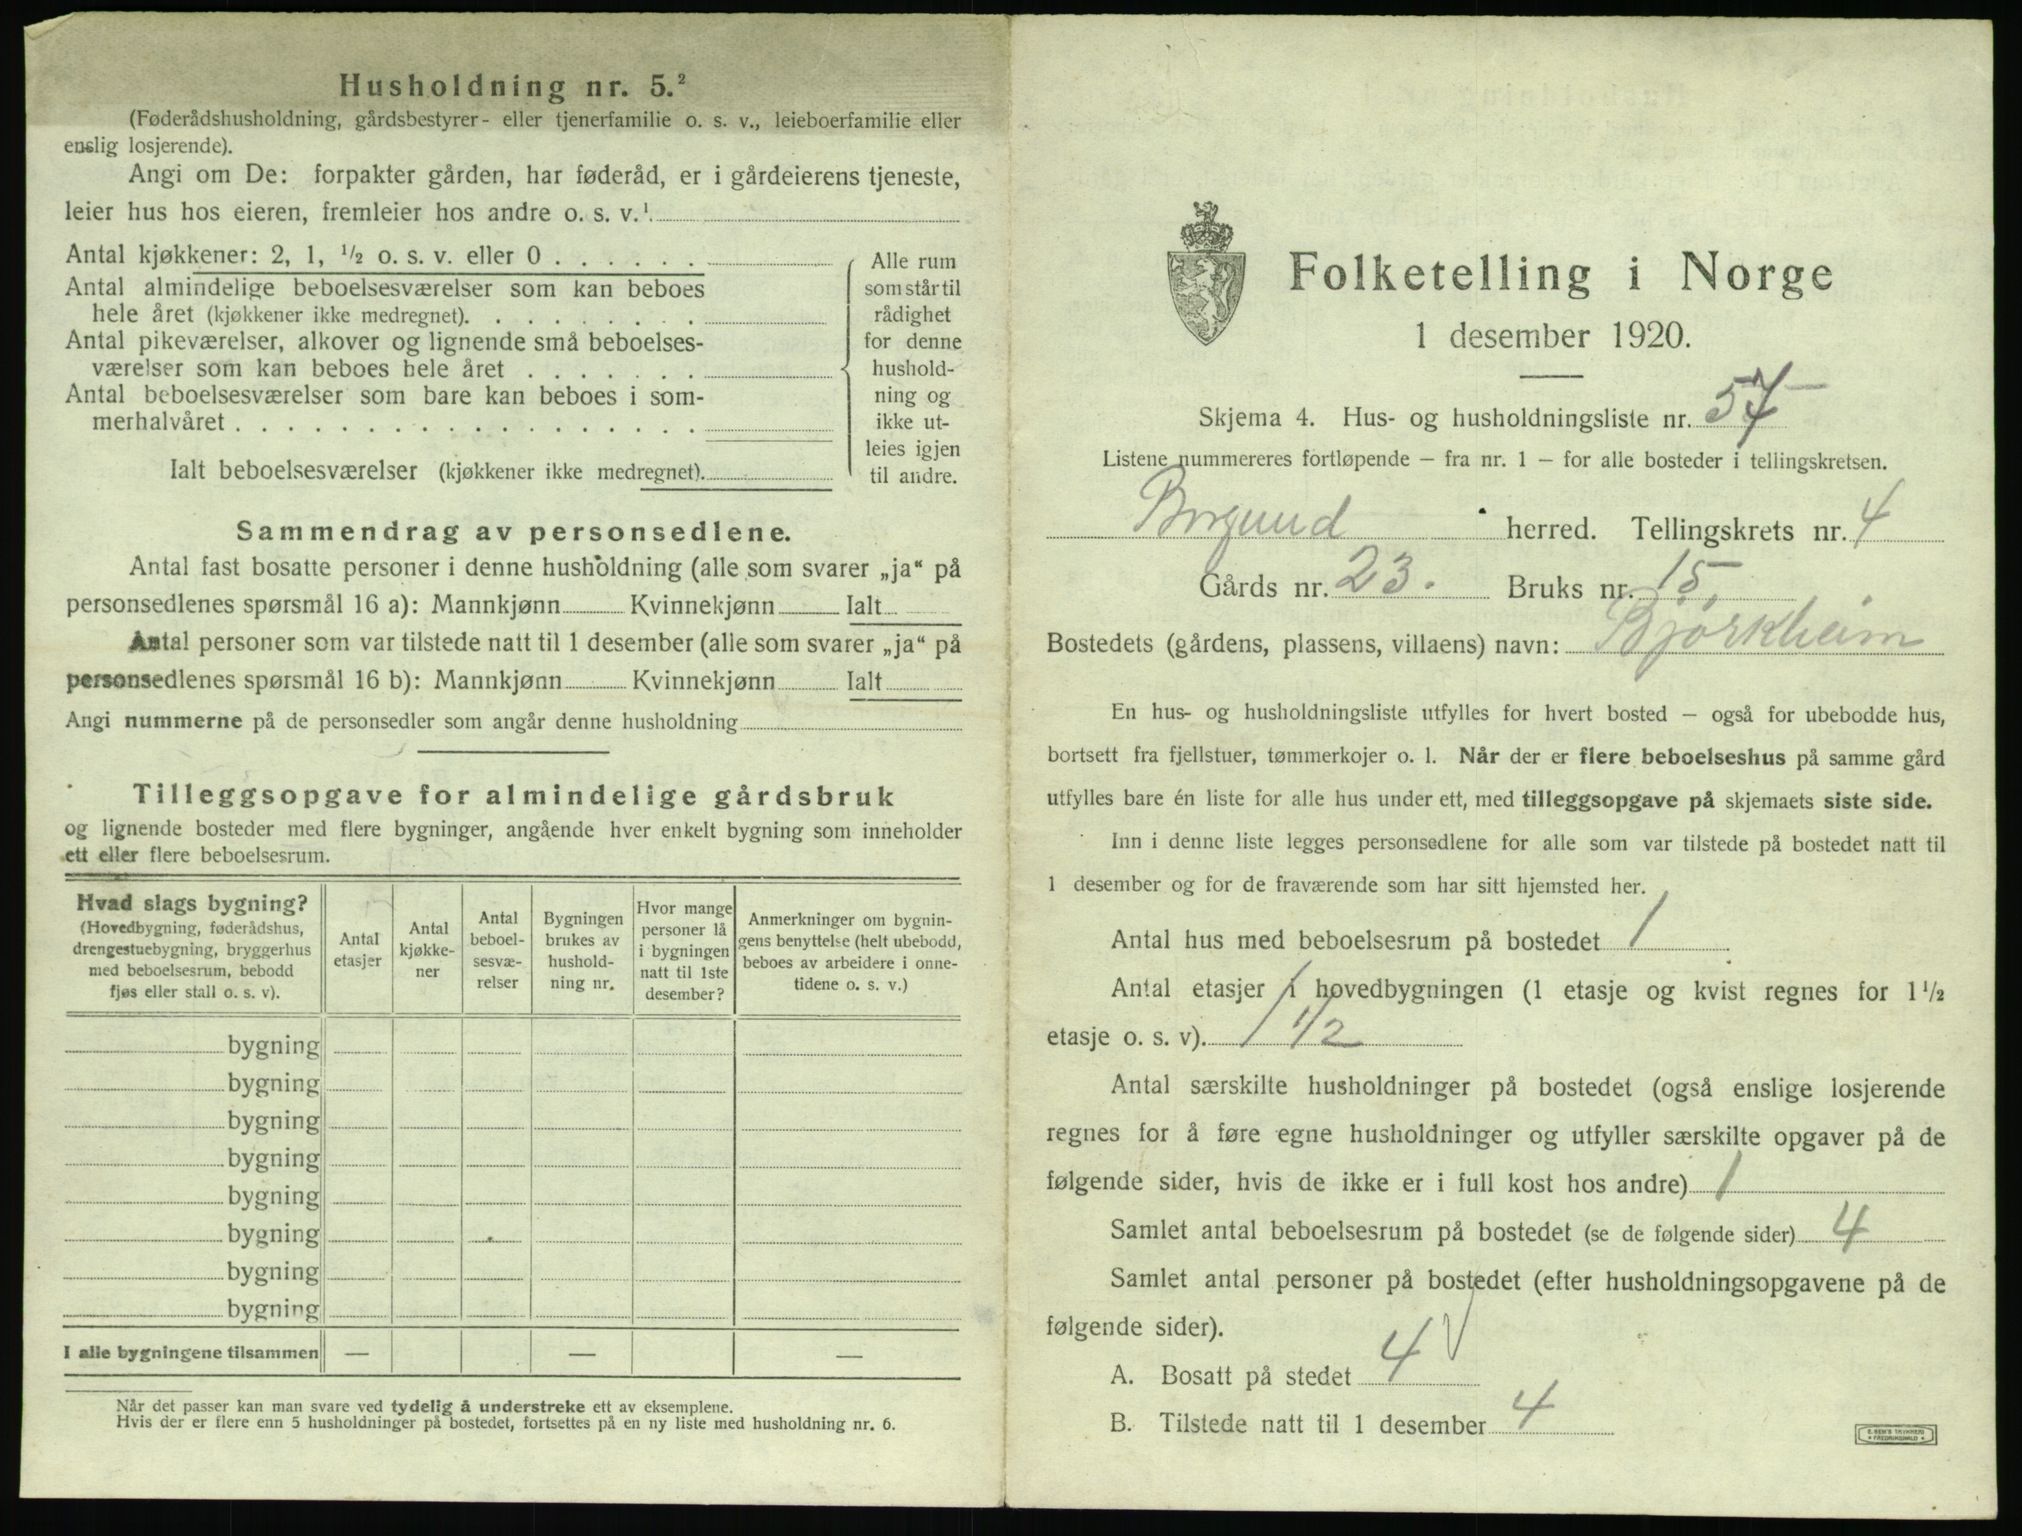 Husholdning nr. 5.²
(Føderådshusholdning, gårdsbestyrer- eller tjenerfamilie o. s. v., leieboerfamilie eller
enslig losjerende).
Angi om De: forpakter gården, har føderåd, er i gårdeierens tjeneste,
leier hus hos eieren, fremleier hos andre o. s. v.¹
Antal kjøkkener: 2, 1, ½ o. s. v. eller 0 . . . . . .
Antal almindelige beboelsesværelser som kan beboes
hele året (kjøkkener ikke medregnet). . . . . . . . .
Antal pikeværelser, alkover og lignende små beboelses-
værelser som kan beboes hele året . . . . . . .
Antal beboelsesværelser som bare kan beboes i som-
merhalvåret . . . . . . . . . . . . . . . . . .
Ialt beboelsesværelser (kjøkkener ikke medregnet).
Alle rum
som står til
rådighet
for denne
hushold-
ning og
ikke ut-
leies igjen
til andre.
Sammendrag av personsedlene.
Antal fast bosatte personer i denne husholdning (alle som svarer „ja“ på
personsedlenes spørsmål 16 a): Mannkjønn Kvinnekjønn Ialt
Antal personer som var tilstede natt til 1 desember (alle som svarer „ja“ på
personsedlenes spørsmål 16 b): Mannkjønn Kvinnekjønn Ialt
Angi nummerne på de personsedler som angår denne husholdning
Tilleggsopgave for almindelige gårdsbruk
og lignende bosteder med flere bygninger, angående hver enkelt bygning som inneholder
ett eller flere beboelsesrum.
Hvad slags bygning?
(Hovedbygning, føderådshus,
drengestuebygning, bryggerhus
med beboelsesrum, bebodd
fjøs eller stall o. s. v).
Antal
etasjer
Antal
kjøkke-
ner
Antal
beboel-
sesvæ-
relser
Bygningen
brukes av
hushold-
ning nr.
Hvor mange
personer lå
i bygningen
natt til 1ste
desember?
Anmerkninger om bygnin-
gens benyttelse (helt ubebodd,
beboes av arbeidere i onne-
tidene o. s. v.)
bygning
bygning
bygning
bygning
bygning
bygning
bygning
bygning
I alle bygningene tilsammen — — —
Når det passer kan man svare ved tydelig å understreke ett av eksemplene.
Hvis der er flere enn 5 husholdninger på bostedet, fortsettes på en ny liste med husholdning nr. 6.
Folketelling i Norge
1 desember 1920.
Skjema 4. Hus- og husholdningsliste nr. 57
Listene nummereres fortløpende – fra nr. 1 – for alle bosteder i tellingskretsen.
Borgund herred. Tellingskrets nr. 4
Gårds nr. 23. Bruks nr. 15.
Bostedets (gårdens, plassens, villaens) navn: Bjørkheim
En hus- og husholdningsliste utfylles for hvert bosted – også for ubebodde hus,
bortsett fra fjellstuer, tømmerkojer o. l. Når der er flere beboelseshus på samme gård
utfylles bare én liste for alle hus under ett, med tilleggsopgave på skjemaets siste side.
Inn i denne liste legges personsedlene for alle som var tilstede på bostedet natt til
1 desember og for de fraværende som har sitt hjemsted her.
Antal hus med beboelsesrum på bostedet 1
Antal etasjer i hovedbygningen (1 etasje og kvist regnes for 1½
etasje o. s. v). 1 1/2
Antal særskilte husholdninger på bostedet (også enslige losjerende
regnes for å føre egne husholdninger og utfyller særskilte opgaver på de
følgende sider, hvis de ikke er i full kost hos andre) 1
Samlet antal beboelsesrum på bostedet (se de følgende sider) 4
Samlet antal personer på bostedet (efter husholdningsopgavene på de
følgende sider).
A. Bosatt på stedet 4
B. Tilstede natt til 1 desember 4